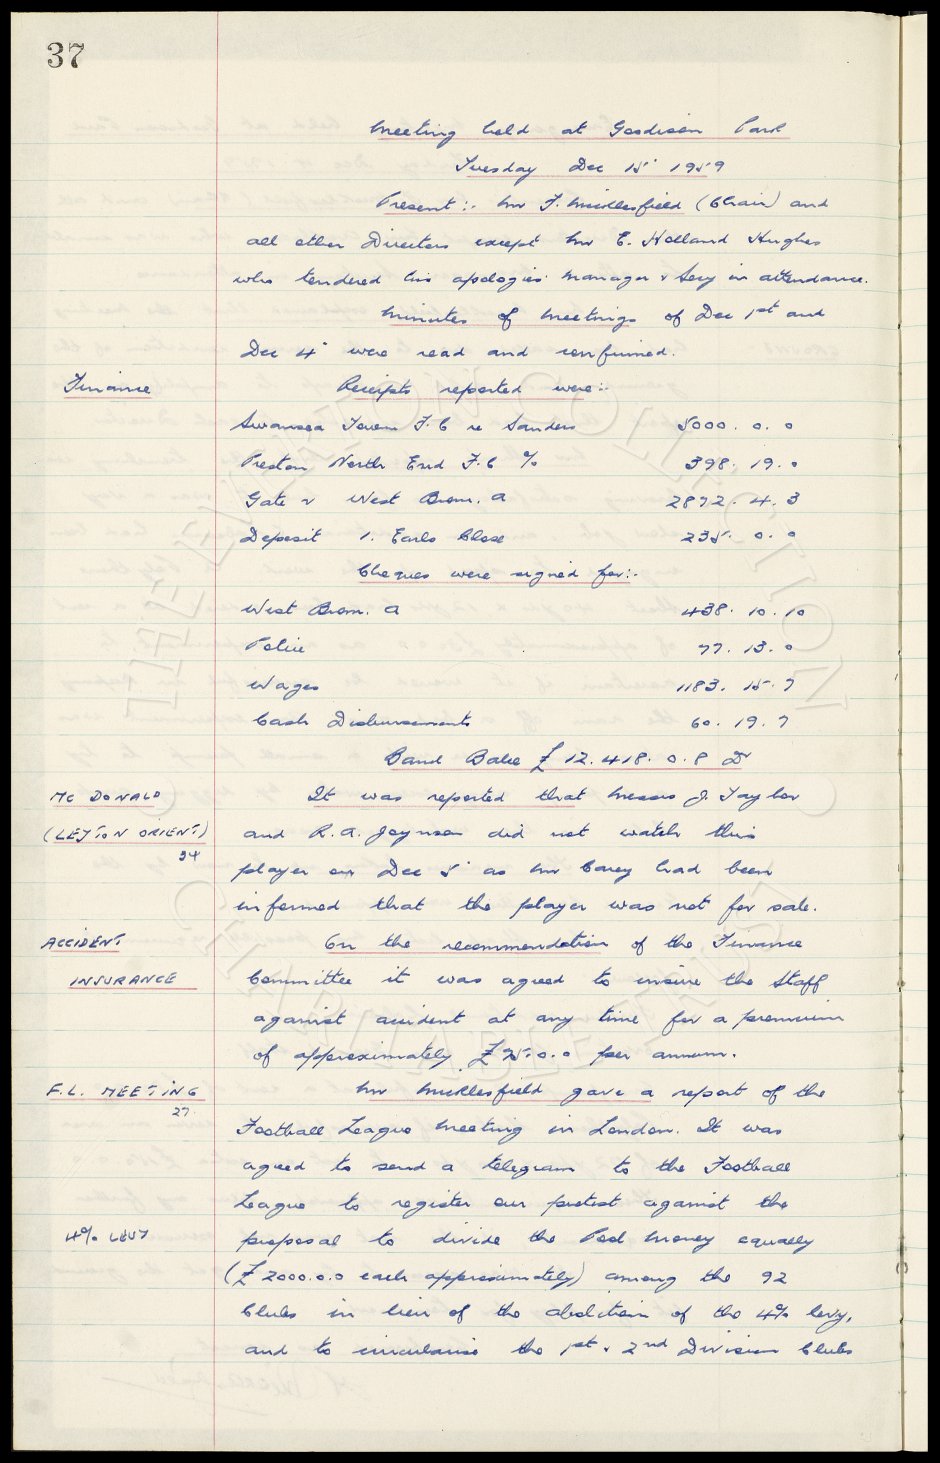 37
Meeting held at Goodison Park
Tuesday Dec 15' 1959
Present:- Mr F. Micklesfield (Chair) and
all other Directors except Mr C. Holland Hughes
who tendered his apologies. Manager & Secy in attendance.
Minutes of Meetings of Dec 1st and
Dec 4' were read and confirmed.
Finance Receipts reported were:-
Swansea Town F.C re Sanders 5000. 0. 0
Preston North End F.C % 398. 19. 0
Gate v West Brom. A 2872. 4. 3
Deposit 1. Earls Close 235. 0. 0
Cheques were signed for:-
West Brom. A 438. 10. 10
Police 77. 13. 0
Wages 1183. 15. 7
Cash Disbursements 60. 19. 7
Bank Balce £ 12.418. 0. 8 Dr
Mc DONALD It was reported that Messrs J. Taylor
(LEYTON ORIENT) and R.A. Joynson did not watch this
34
player on Dec 5' as Mr Carey had been
informed that the player was not for sale.
ACCIDENT On the recommendation of the Finance
INSURANCE Committee it was agreed to insure the Staff
against accident at any time for a premium
of approximately per annum.
F.L. MEETING Mr Micklesfield gave a report of the
27.
Football League Meeting in London. It was
agreed to send a telegram to the Football
League to register our protest against the
4% LEVY proposal to divide the Pool Money equally
(£2000.0.0 each approximately) among the 92
Clubs in lieu of the abolition of the 4% levy,
and to circularise the 1st & 2nd Division Clubs
THE EVERTON COLLECTION
CHARITABLE TRUST